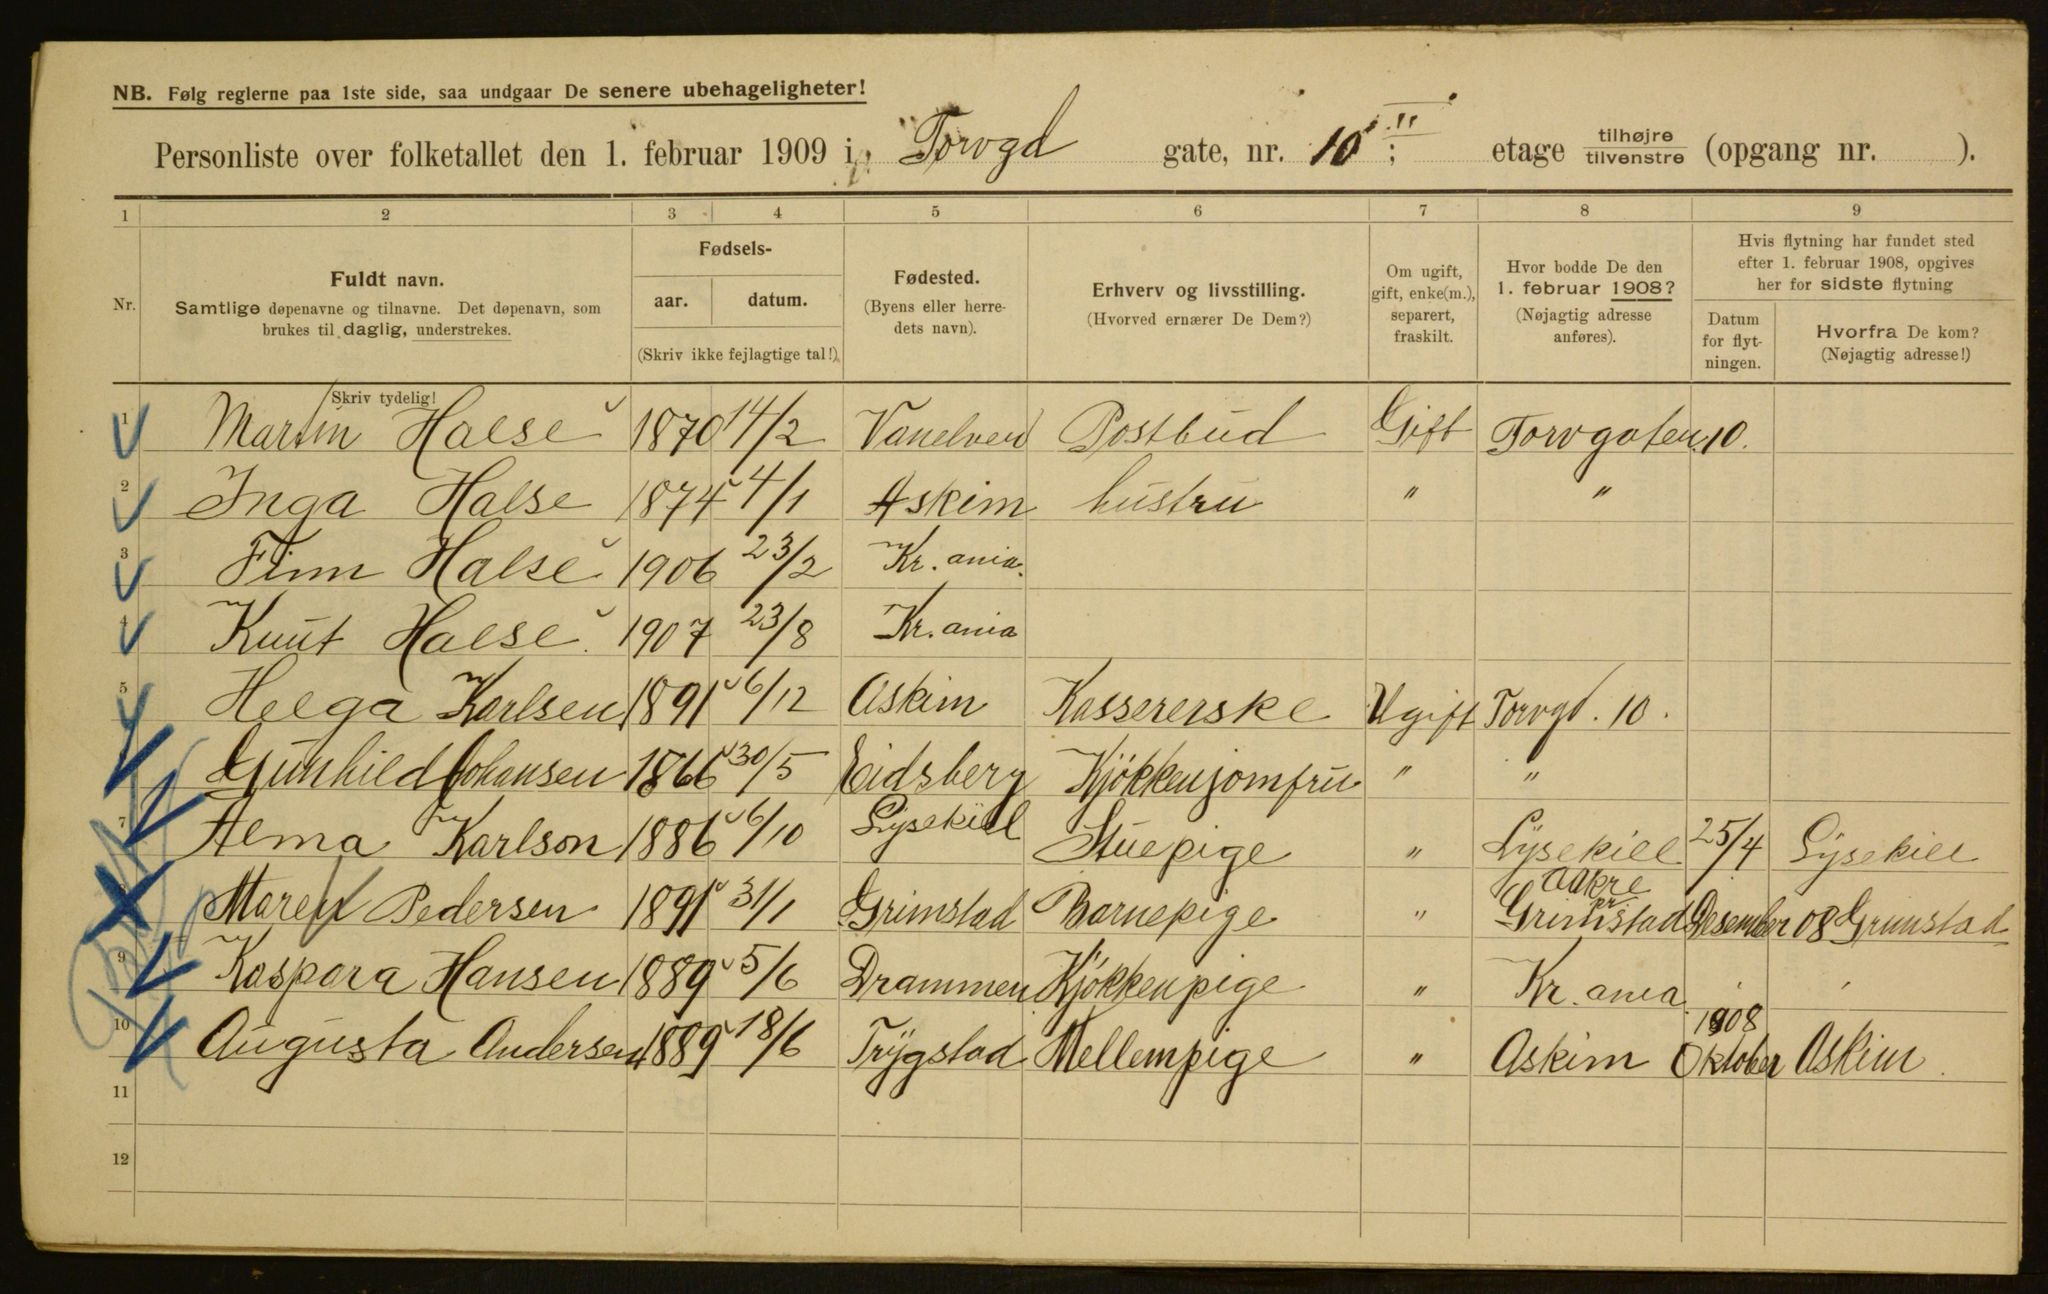 NB. Følg reglerne paa 1ste side, saa undgaar De senere ubehageligheter!
Personliste over folketallet den 1. februar 1909 i Torvgd gate, nr. 10 II; etage tilhøjre/tilvenstre (opgang nr. ).
1 2 3 4 5 6 7 8 9
Nr.
Fuldt navn.
Samtlige døpenavne og tilnavne. Det døpenavn, som
brukes til daglig, understrekes.
Fødsels-
aar. datum.
(Skriv ikke fejlagtige tal!)
Fødested.
(Byens eller herre-
dets navn).
Erhverv og livsstilling.
(Hvorved ernærer De Dem?)
Om ugift,
gift, enke(m.),
separert,
fraskilt.
Hvor bodde De den
1. februar 1908?
(Nøjagtig adresse
anføres).
Hvis flytning har fundet sted
efter 1. februar 1908, opgives
her for sidste flytning
Datum
for flyt-
ningen.
Hvorfra De kom?
(Nøjagtig adresse!)
Skriv tydelig!
1 Martin Halse 1870 14/2 Vanelven Postbud Gift Torvgaten 10.
2 Inga Halse 1874 4/1 Askim hustru " "
3 Finn Halse 1906 23/2 Kr.ania.
4 Knut Halse. 1907 23/8 Kr.ania
5 Helga Karlsen 1891 6/12 Askim Kassererske Ugift Torvgd. 10.
Gunhild Johansen 1866 30/5 Eidsberg Kjökkenjomfru " "
7 Alma Karlson 1886 6/10 Lysekiel Stuepige " Lysekiel 25/4 Lysekiel
8 Maren Pedersen 1891 31/1 Grimstad Barnepige " Aakre pr Grimstad Desember 08 Grimstad
9 Kaspara Hansen 1889 5/6 Drammen Kjökkenpige " Kr.ania
10 Augusta Andersen 1889 18/6 Trygstad Mellempige " Askim 1908 Oktober Askim.
11
12